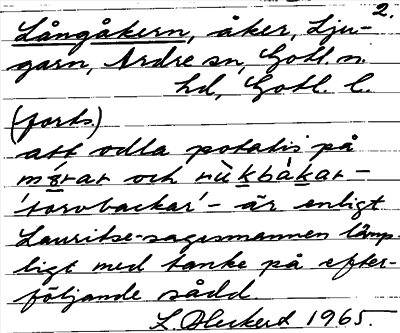 2.
Långåkern, åker, Lju-
garn, Ardre sn, Gotl. n.
hd, Gotl. l.
(forts)
att odla potatis på
och
'torvbackar' - är enligt
Lauritse-sagesmannen lämp-
ligt med tanke på efter-
följande sådd.
1965.